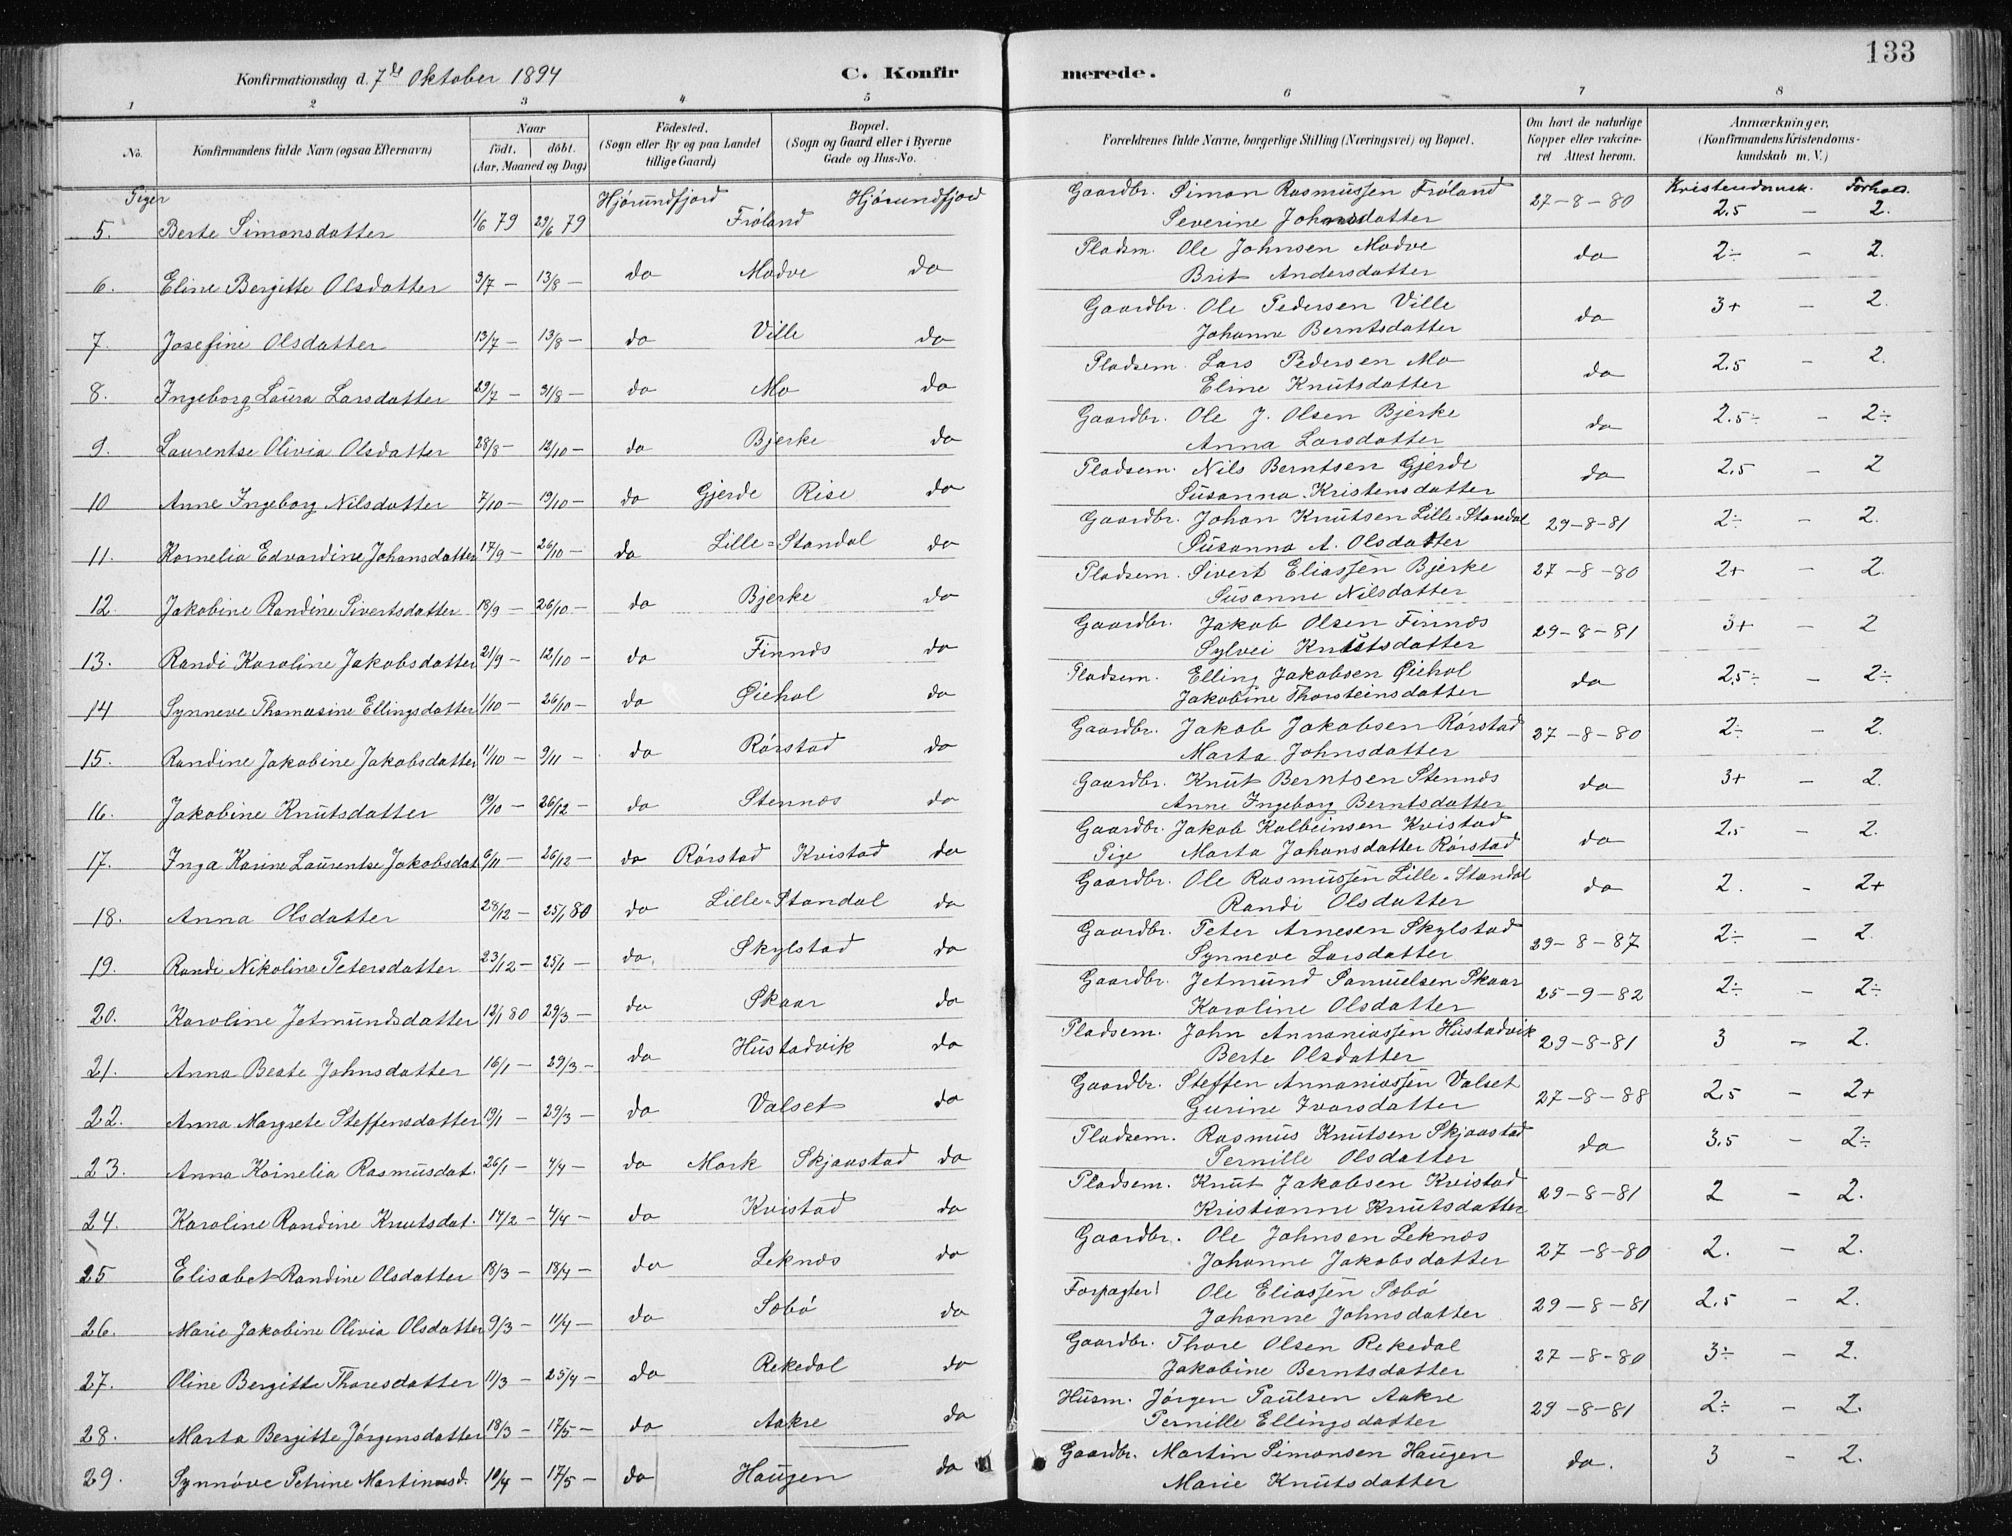 133
Konfirmationsdag d. 7de Oktober 1894
C. Konfirmerede.
1 2 3 4 5 6 7 8
No. Konfirmandens fulde Navn (ogsaa Efternavn) Naar födt. döbt. (Aar, Maaned og Dag) Födested. (Sogn eller By og paa Landet tillige Gaard) Bopæl. (Sogn og Gaard eller i Byerne Gade og Hus-No. Forældrenes fulde Navne, borgerlige Stilling (Næringsvei) og Bopæl. Om havt de naturlige Kopper eller vakcineret Attest herom. Anmærkninger, (Konfirmandens Kristendomskundskab m. V.)
Piger Hjörundfjord Hjörundfjord Kristendomsk. Forhold.
5. Berte Simonsdatter 1/6 79 29/6 79 Fröland Gaardbr. Simon Rasmussen Fröland Severine Johnsdatter 27-8-80 2.5 - 2.
6. Eline Bergitte Olsdatter 3/7 - 13/8 - do Modve do Pladsm. Ole Johnsen Modve Brit Andersdatter do 2÷ - 2.
7. Josefine Olsdatter 13/7 - 13/8 - do Ville do Gaardbr. Ole Pedersen Ville Johanne Berntsdatter do 3+ - 2.
8. Ingeborg Laura Larsdatter 29/7 - 31/8 - do Mo do Pladsem. Lars Pedersen Mo Eline Knutsdatter do 2.5 - 2.
9. Laurentse Olivia Olsdatter 28/8 - 12/10 - do Bjerke do Gaardbr. Ole J. Olsen Bjerke Anna Larsdatter do 2.5÷ - 2÷
10 Anne Ingeborg Nilsdatter 7/10 - 19/10 - do Gjerde Rise do Pladsem. Nils Berntsen Gjerde Susanna Kristensdatter do 2.5 - 2
11. Kornelia Edvardine Johansdatter 17/9 - 26/10 - do Lille=Standal do Gaardbr. Johan Knutsen Lille=Standal Susanna A. Olsdatter 29-8-81 2÷ - 2.
12. Jakobine Randine Sivertsdatter 18/9 - 26/10 - do Bjerke do Pladsem. Sivert Eliassen Bjerke Susanne Nilsdatter 27-8-80 2+ - 2.
13. Randi Karoline Jakobsdatter 21/9 - 12/10 - do Finnes do Gaardbr. Jakob Olsen Finnes Sylvei Knutsdatter 29-8-81 3+ - 2
14 Synneve Thomasine Ellingsdatter 1/10 - 26/10 - do Øiehol do Pladsem. Elling Jakobsen Øiehol Jakobine Thorsteinsdatter do 2.5÷ - 2÷
15. Randine Jakobine Jakobsdatter 11/10 - 9/11 - do Rörstad do Gaardbr. Jakob Jakobsen Rörstad Marta Johnsdatter 27-8-80 2÷ - 2.
16. Jakobine Knutsdatter 19/10 - 26/12 - do Stennes do Gaardbr. Knut Berntsen Stennes Anne Ingeborg Berntsdatter do 3+ - 2.
17. Inga Karine Laurentse Jakobsdat. 6/11 - 26/12 - do Rörstad Kvistad do Gaardbr. Jakob Kolbeinsen Kvistad Pige Marta Johansdatter Rörstad do 2.5 - 2.
18. Anna Olsdatter 28/12 - 25/1 80 do Lille=Standal do Gaardbr. Ole Rasmussen Lille=Standal Randi Olsdatter do 2. - 2+
19. Randi Nikoline Petersdatter 23/12 - 25/1 - do. Skylstad do Gaardbr. Peter Arnesen Skylstad Synneve Larsdatter 29-8-87 2÷ - 2.
20. Karoline Jetmundsdatter 12/1 80 29/3 - do Skaar do Gaardbr. Jetmund Samuelsen Skaar Karoline Olsdatter 25-9-82 2÷ - 2÷
21. Anna Beate Johnsdatter 16/1 - 29/3 - do Hustadvik do Pladsem. John Annaniassen Hustadvik Berte Olsdatter 29-8-81 3 - 2.
22. Anna Margrete Steffensdatter 19/1 - 29/3 - do Valset do Gaardbr. Steffen Annaniassen Valset Gurine Ivarsdatter 27-8-88 2.5 - 2+
23. Anna Kornelia Rasmusdat. 26/1 - 4/4 - do Mork Skjaastad do Pladsem. Rasmus Knutsen Skjaastad Pernille Olsdatter do 3.5 - 2÷
24. Karoline Randine Knutsdat. 14/2 - 4/4 - do Kvistad do Pladsem. Knut Jakobsen Kvistad Kristianne Knutsdatter 29-8-81 2 - 2.
25 Elisabet Randine Olsdatter 18/3 - 18/4 - do Leknes do Gaardbr. Ole Johnsen Leknes Johanne Jakobsdatter 27-8-80 2. - 2.
26. Marie Jakobine Olivia Olsdatter 9/3 - 11/4 - do Sæbö do Forpagter Ole Eliassen Sæbö Johanne Johnsdatter 29-8-81 2.5 - 2.
27. Oline Bergitte Thoresdatter 11/3 - 25/4 - do Rekedal do Gaardbr. Thore Olsen Rekedal Jakobine Berntsdatter 27-8-80 3÷ - 2.
28. Marta Bergitte Jörgensdatter 18/3 - 17/5 - do Aakre do Husm. Jörgen Paulsen Aakre Pernille Ellingsdatter 29-8-81 2÷ - 2.
29. Synnöve Petrine Martinusd. 10/4 - 17/5 - do Haugen do Gaardbr. Martin Simonsen Haugen Marie Knutsdatter do. 3 - 2.